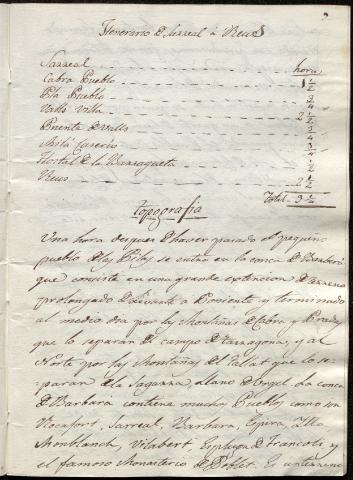 Itenerario de Sarreal á Reus
Sarreal
hora
Cabra Pueblo 1 1/2
Pla Pueblo 3/4
Valls Villa 2 1/2
Puente de Valls 3/4
Milá Caserio 3/4
Hostal de la Barraqueta 1/2
Reus 2 1/2
Total 9 1/2
topografia
Una hora despues de haver pasado el pequeño
pueblo de las Pilas se entra en la conca de Barberá
que consiste en una grande extencion de terreno
prolongado de Levante a Poniente y terminado
al medio dia por las Montañas de Cabra y Prades
que lo separan del campo de tarragona, y al
Norte por las Montañas del Tallat que lo se-
paran de la Sagarra, llano de Urgel. La conca
de Barbara contiene muchos Pueblos como son
Rocafort, Sarreal, Barbara, Espira,
Monblanch, Vilabert, Espluga de Francoli, y
el famoso Monasterio de Poblet. Es un terreno